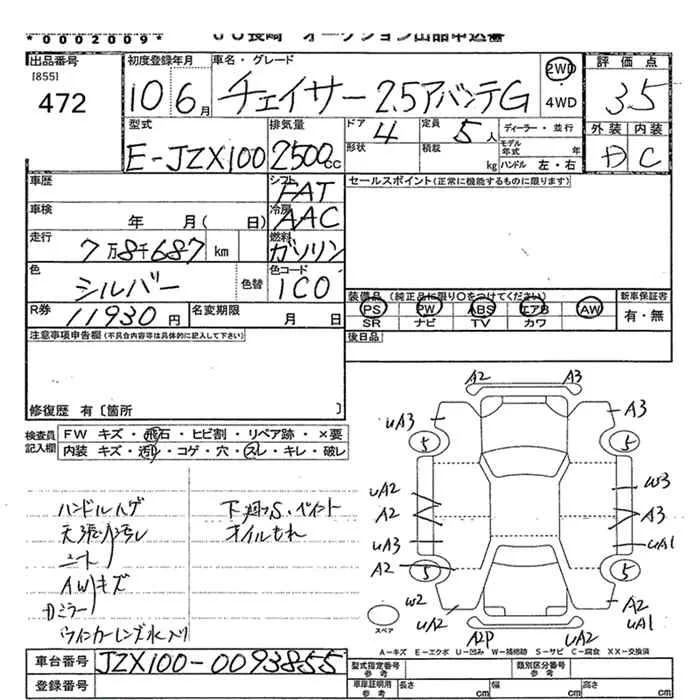 *0002009* JU長崎 オークション出品申込書
出品番号 [855] 472
初度登録年月 10 6月
車名・グレード チェイサー 2.5アバンテG
2WD 4WD
評価点 3.5
外装 D 内装 C
型式 E-JZX100
排気量 2500cc
ドア 4 定員 5人 ディーラー・並行
形状 積載 kg モデル年式 年 ハンドル 左・右
車歴
シフト FAT
セールスポイント(正常に機能するものに限ります)
車検 年 月( 日)
冷房 AAC
走行 7万8千687 km
燃料 ガソリン
色 シルバー 色替
色コード 1C0
装備品(純正品に限り○をつけてください) 新車保証書
PS PW ABS エアB AW 有・無
SR ナビ TV カワ
R券 11930円 名変期限 月 日
後日品
注意事項申告欄(不具合内容等は具体的に記入して下さい)
修復歴 有〔箇所 〕
検査員記入欄
FW キズ・飛石・ヒビ割・リペア跡・×要
内装 キズ・汚レ・コゲ・穴・スレ・キレ・破レ
ハンドルハゲ
天張り汚レ
シート
AWキズ
Dミラー
ウインカーレンズ水入り
下廻りS・ペイント
オイルもれ
A2 A3
uA3 A3
5 5
uA2 W3
A2 A3
uA3 uA1
A2 5 5
W2 uA2 A2 uA1
A2P uA2
スペア
A-キズ E-エクボ U-凹み W-補修跡 S-サビ C-腐食 XX-交換済
車台番号 JZX100-0093855
型式指定番号 参考 類別区分番号 参考
登録番号
車庫証明用 参考 長さ cm 幅 cm 高さ cm